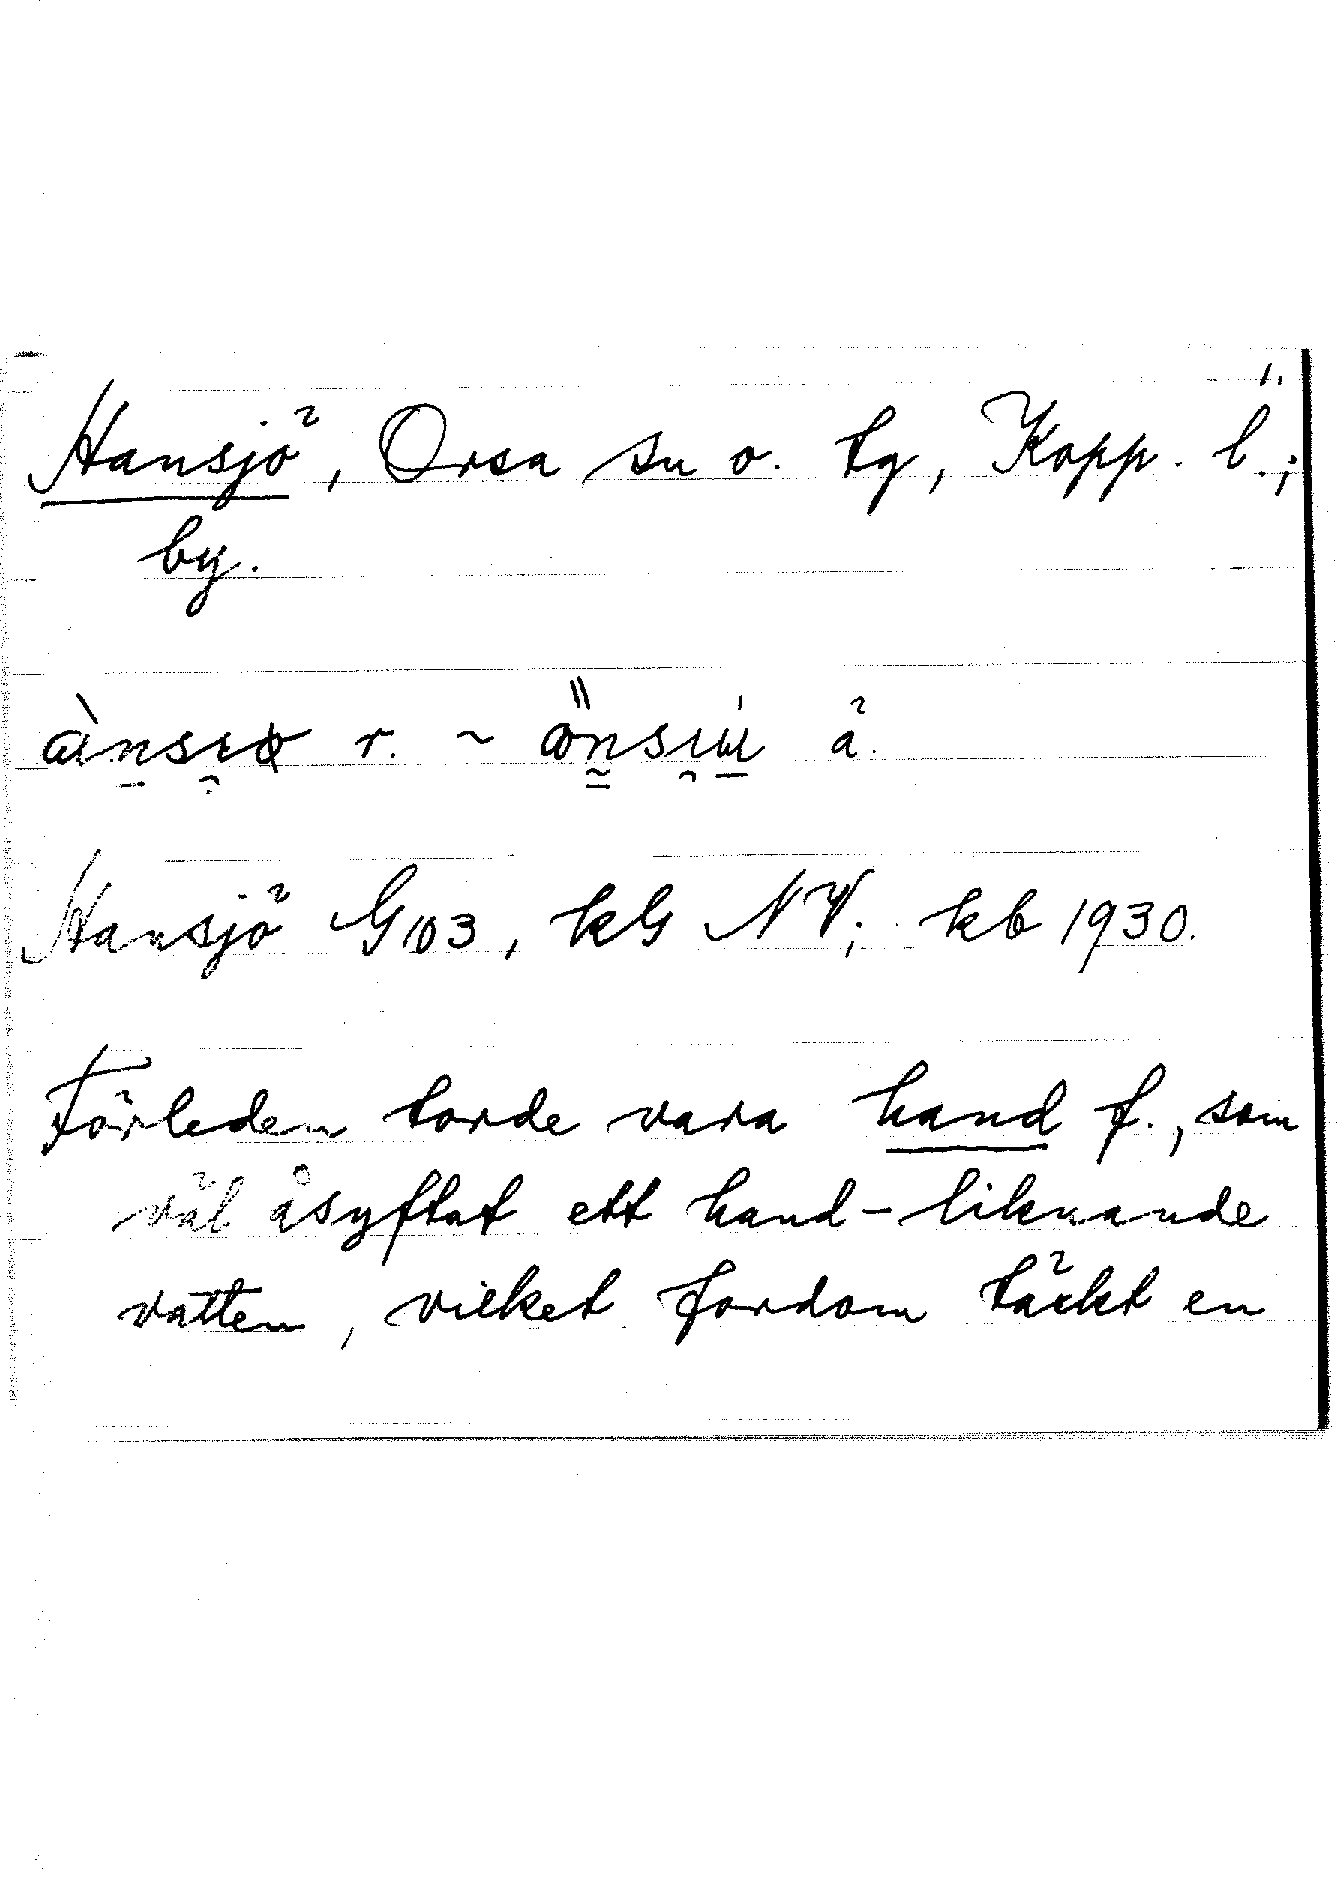 1.
Hansjö, Orsa sn o. tg, Kopp. l.;
by.
r. ~ å.
Hansjö G 103, kG NV; kb 1930.
Förleden torde vara hand f., som
väl åsyftat ett hand-liknande
vatten, vilket fordom täckt en